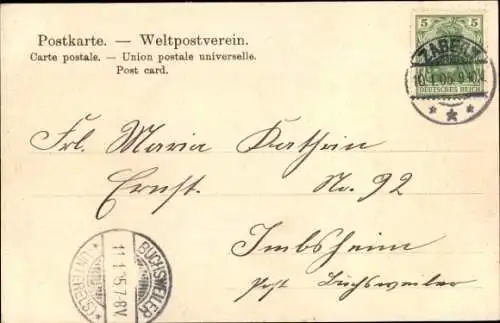 Postkarte. — Weltpostverein.
Carte postale. — Union postale universelle.
Post card.
5 5
DEUTSCHES REICH
ZABERN
10.1.05.9-10
Frl. Maria Kathrin
Ernst. No. 92
Imbsheim
Post Buchsweiler
BUCHSWEILER
11.1.05.7-8V
(UNTERELS)